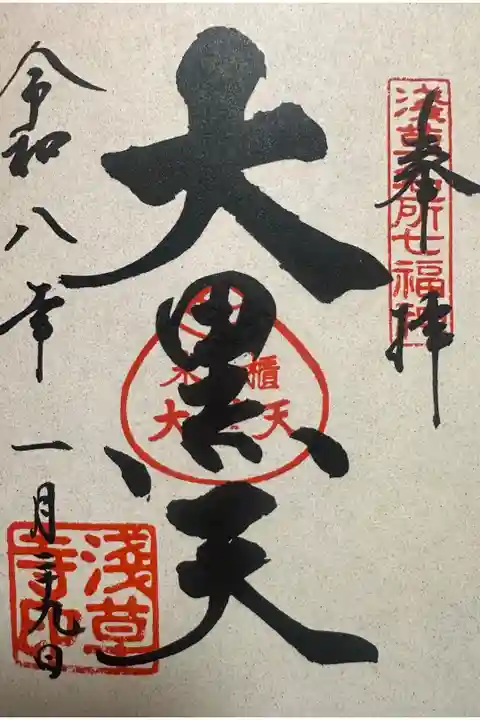 奉拝
淺草名所七福神
大黒天
米櫃
大黒天
令和八年一月二十九日
淺草
寺印